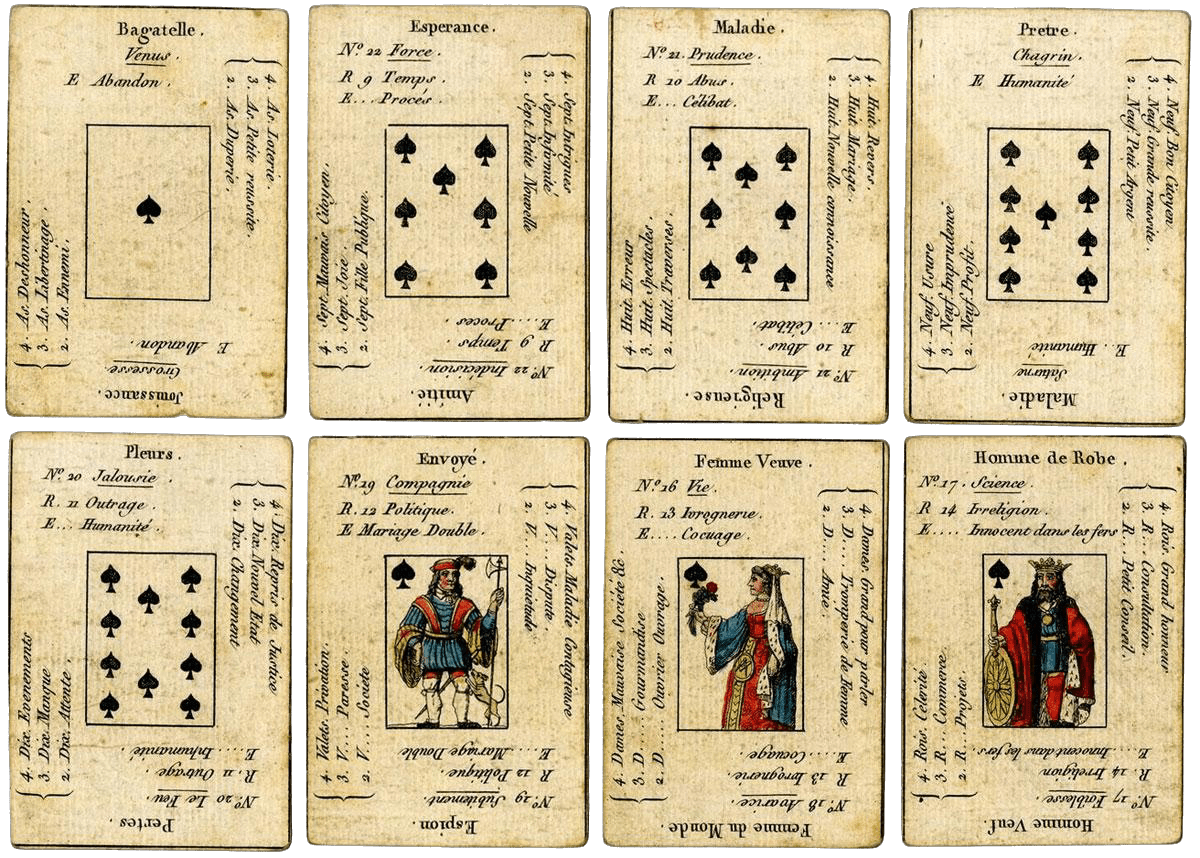 Bagatelle.
Venus.
E Abandon.
4. As. Loterie.
3. As. Petite reussite.
2. As. Duperie.
4. As. Deshonneur.
3. As. Libertinage.
2. As. Ennemi.
E Abandon.
Grossesse.
Jouissance.
Esperance.
No. 22 Force.
R 9 Temps.
E... Procés.
4. Sept. Intrigues
3. Sept. Infirmité
2. Sept. Petite Nouvelle
4. Sept. Mauvais Citoyen.
3. Sept. Joie.
2. Sept. Fille Publique.
E.... Proces
R 9 Temps.
No. 22 Indécision.
Amitié.
Maladie.
No. 21. Prudence.
R 10 Abus.
E... Célibat.
4. Huit. Revers.
3. Huit. Mariage.
2. Huit. Nouvelle connoissance
4. Huit Erreur
3. Huit. Spectacles
2. Huit. Traverses.
E.... Celibat.
R 10 Abus.
No. 21 Ambition.
Religieuse.
Pretre.
Chagrin.
E Humanité
4. Neuf. Bon Citoyen
3. Neuf Grande reussite.
2. Neuf. Petit Argent
4. Neuf. Usure
3. Neuf. Imprudence
2. Neuf. Profit.
E.. Humanité
Saturne
Maladie.
Pleurs.
No. 20 Jalousie.
R. 11 Outrage.
E... Humanité.
4 Dix. Repris de Justice
3. Dix. Nouvel Etat
2. Dix. Changement
4. Dix Evenements
3. Dix Manque
2. Dix. Attente.
E.... Inhumanité.
R. 11 Outrage.
No. 20 Le Feu.
Pertes.
Envoyé.
No. 19 Compagnie
R. 12 Politique.
E Mariage Double.
4. Valets. Maladie Contagieuse
3. V... Dispute.
2. V... Inquiétude
4. Valets. Privation.
3. V.... Paresse
2. V... Societe
E... Mariage Double
R 12 Politique.
No. 19 Jubilement.
Espion.
Femme Veuve.
No. 16 Vie.
R. 13 Ivrognerie.
E.... Cocuage.
4. Dames. Grand pour parler
3. D... Tromperie de Femme
2. D.... Amie.
4. Dames. Mauvaise Société &c.
3. D..... Gourmandise
2. D..... Ouvrier Ouvrage.
E.... Cocuage.
R 13 Ivrognerie.
No. 18 Avarice.
Femme du Monde.
Homme de Robe.
No. 17. Science.
R 14 Irreligion.
E.... Innocent dans les fers
4. Rois. Grand honneur
3. R... Consultation.
2. R... Petit Conseil.
4. Rois. Célerité
3. R... Commerce.
2. R... Projets.
E.... Innocent dans les fers.
R 14 Irreligion
No. 17 Foiblesse.
Homme Veuf.